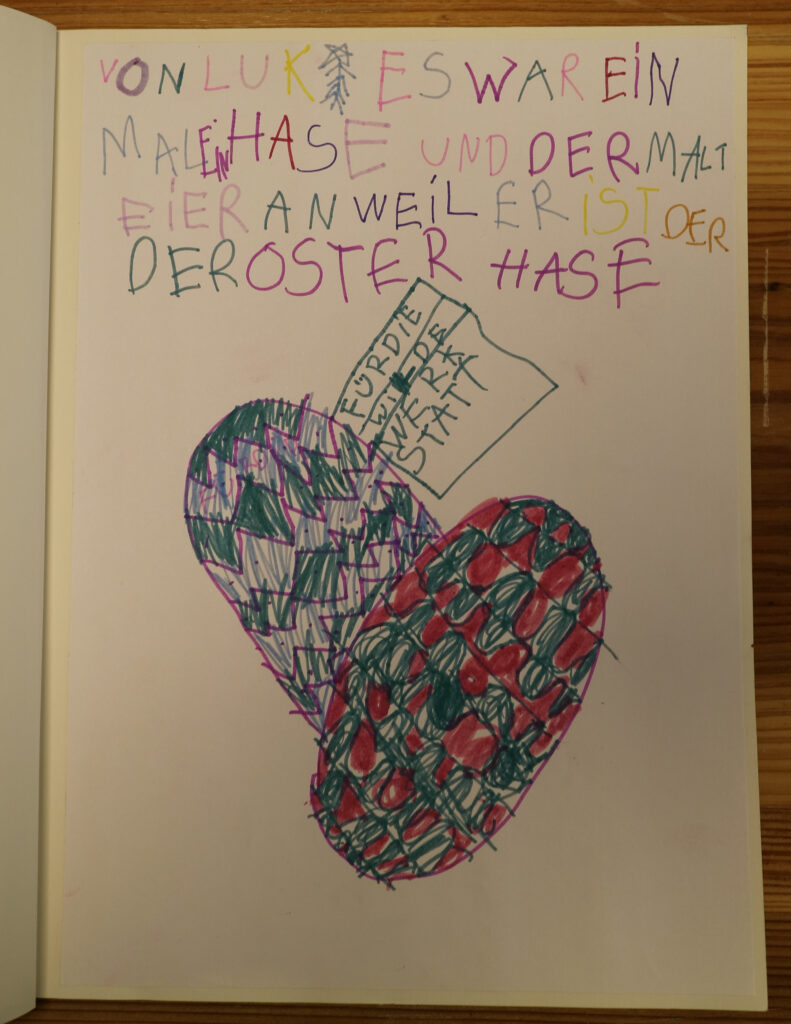 VON LUK ES WAR EIN
MAL EIN HASE UND DER MALT
EIER AN WEIL ER IST DER
DER OSTER HASE
FÜR DIE
WILDE
WERK
STATT